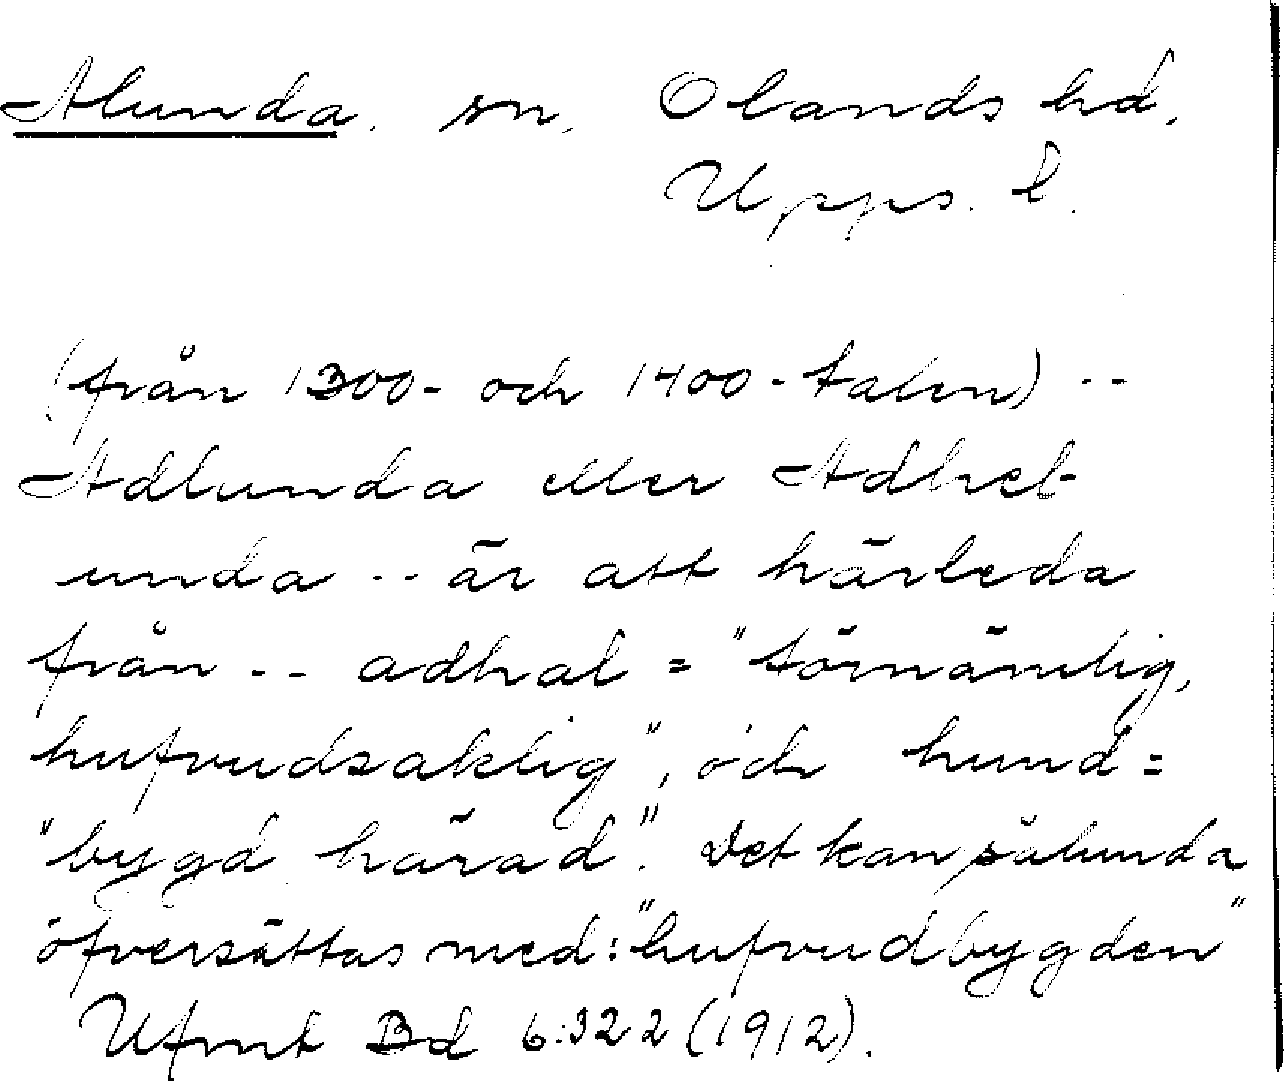 Alunda. sn. Olands hd.
Upps. l.
(från 1300- och 1400-talen) --
Adlunda eller Adhel-
unda -- är att härleda
från -- adhal = "förnämlig,
hufvudsaklig", och hund =
"bygd härad". Det kan sålunda
öfversättas med: "hufvudbygden"
Ufmt Bd 6:322 (1912).